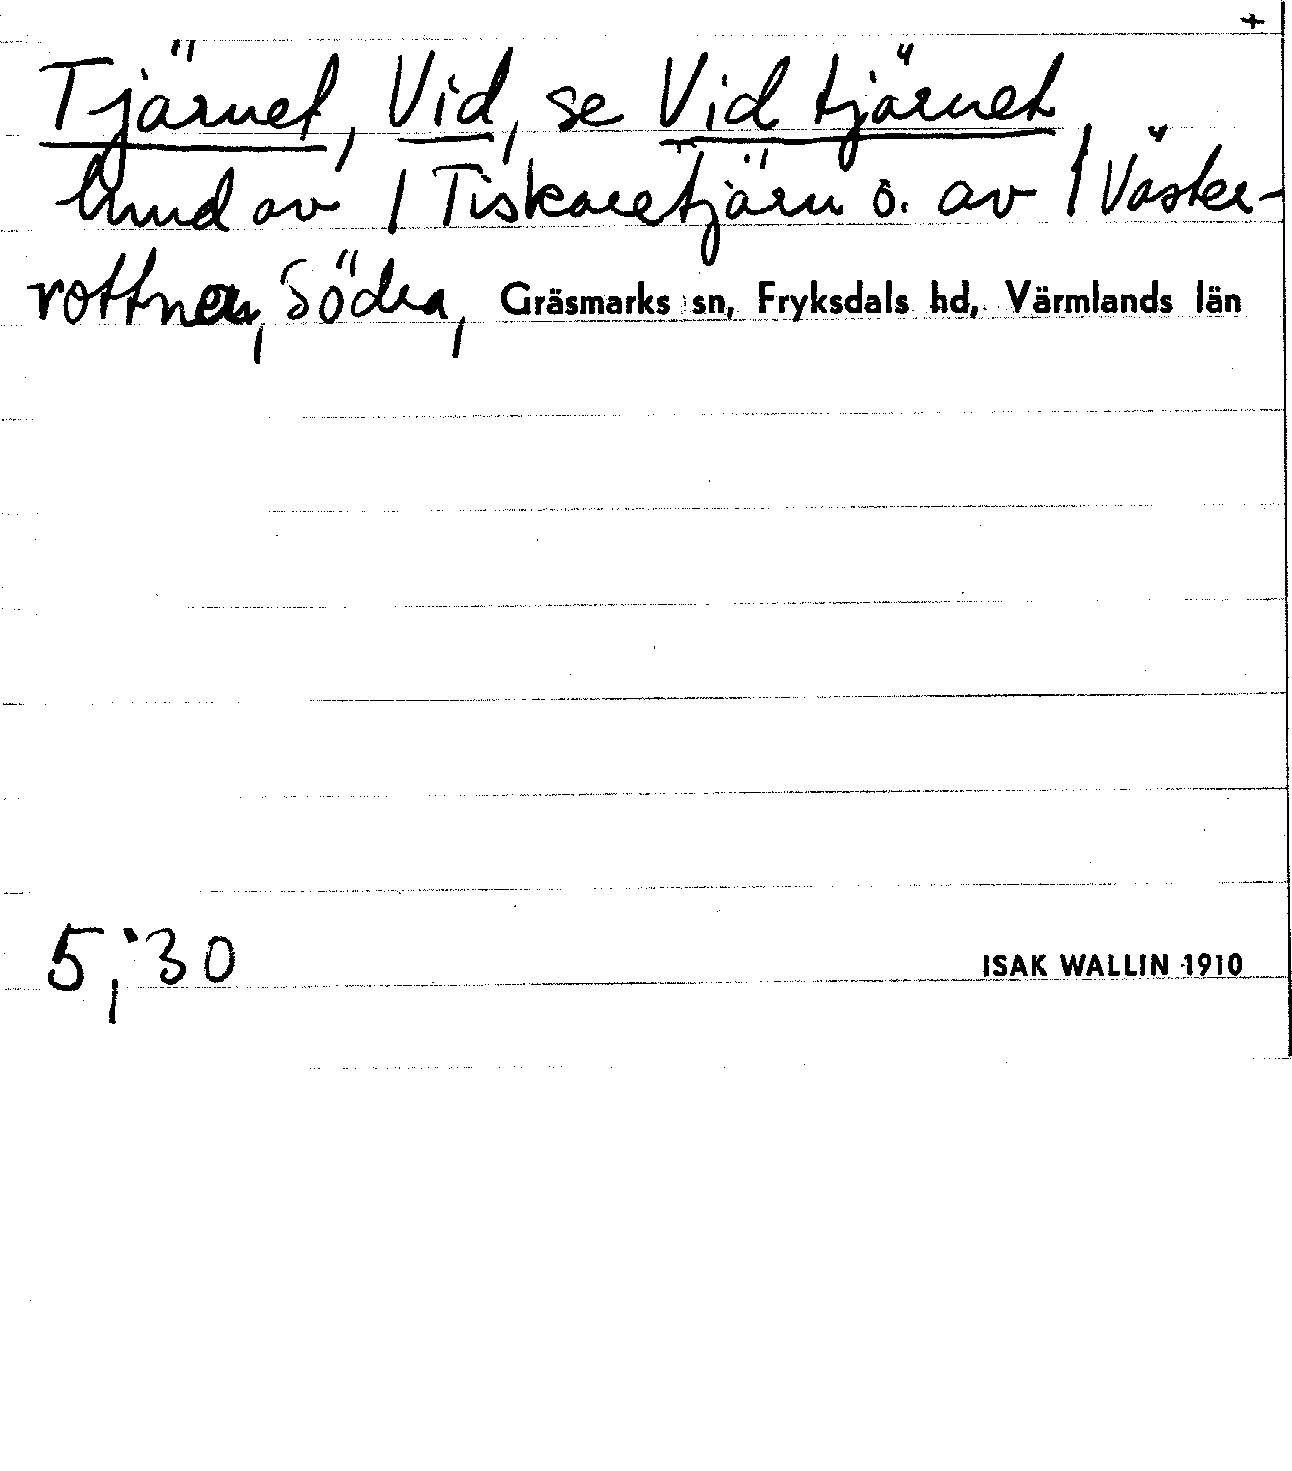 +
Tjärnet, Vid, se Vid tjärnet,
hmd av 1 Tiskaretjärn o. av 1 Väster-
rottnen, Södra, Gräsmarks sn, Fryksdals hd, Värmlands län
5, 30
ISAK WALLIN 1910